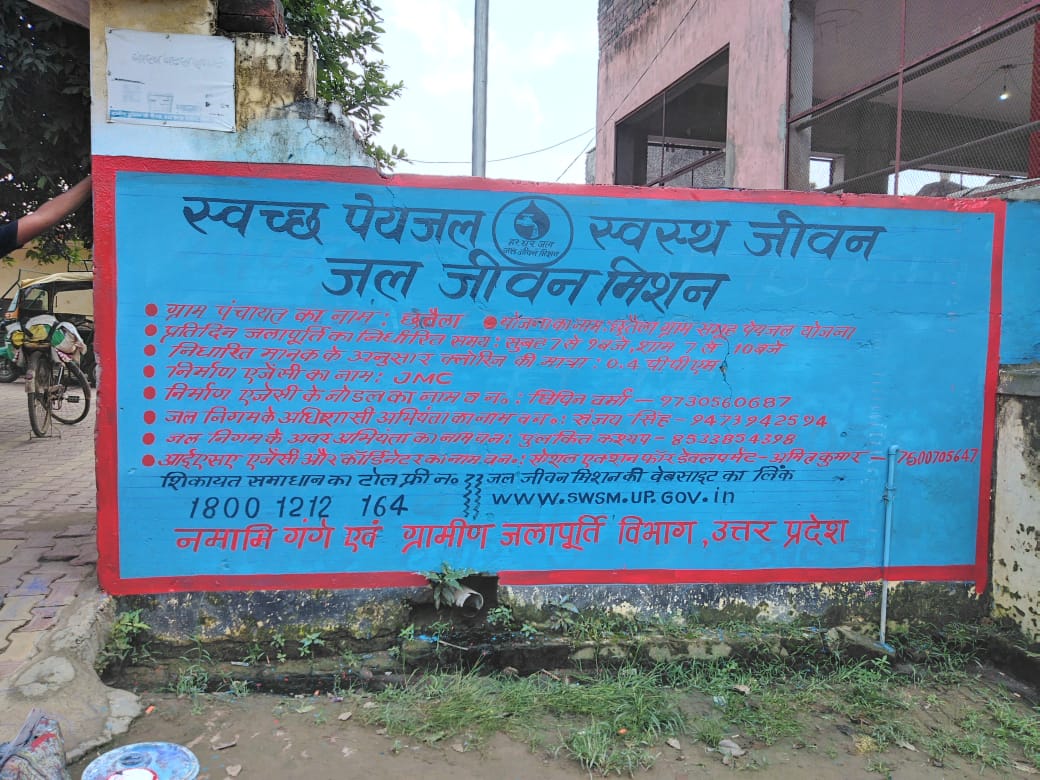 स्वच्छ पेयजल स्वस्थ जीवन
हर घर जल
जल जीवन मिशन
जल जीवन मिशन
ग्राम पंचायत का नाम : छतैला ● योजना का नाम : छतैला ग्राम समूह पेयजल योजना
● प्रतिदिन जलापूर्ति का निर्धारित समय : सुबह 7 से 9 बजे, शाम 7 से 10 बजे
● निर्धारित मानक के अनुसार क्लोरिन की मात्रा : 0.4 पीपीएम
● निर्माण एजेंसी का नाम : JMC
● निर्माण एजेंसी के नोडल का नाम व न० : विपिन वर्मा - 9730560687
● जल निगम के अधिशासी अभियंता का नाम व न० : संजय सिंह - 9473942594
● जल निगम के अवर अभियंता का नाम व न० : पुलकित कश्यप - 8533854398
● आईएसए एजेंसी और कॉर्डिनेटर का नाम व न० : सोशल एक्शन फॉर डेवलपमेंट - अमित कुमार - 7500705647
शिकायत समाधान का टोल फ्री न० जल जीवन मिशन की वेबसाइट का लिंक
1800 1212 164 www.swsm.up.gov.in
नमामि गंगे एवं ग्रामीण जलापूर्ति विभाग, उत्तर प्रदेश